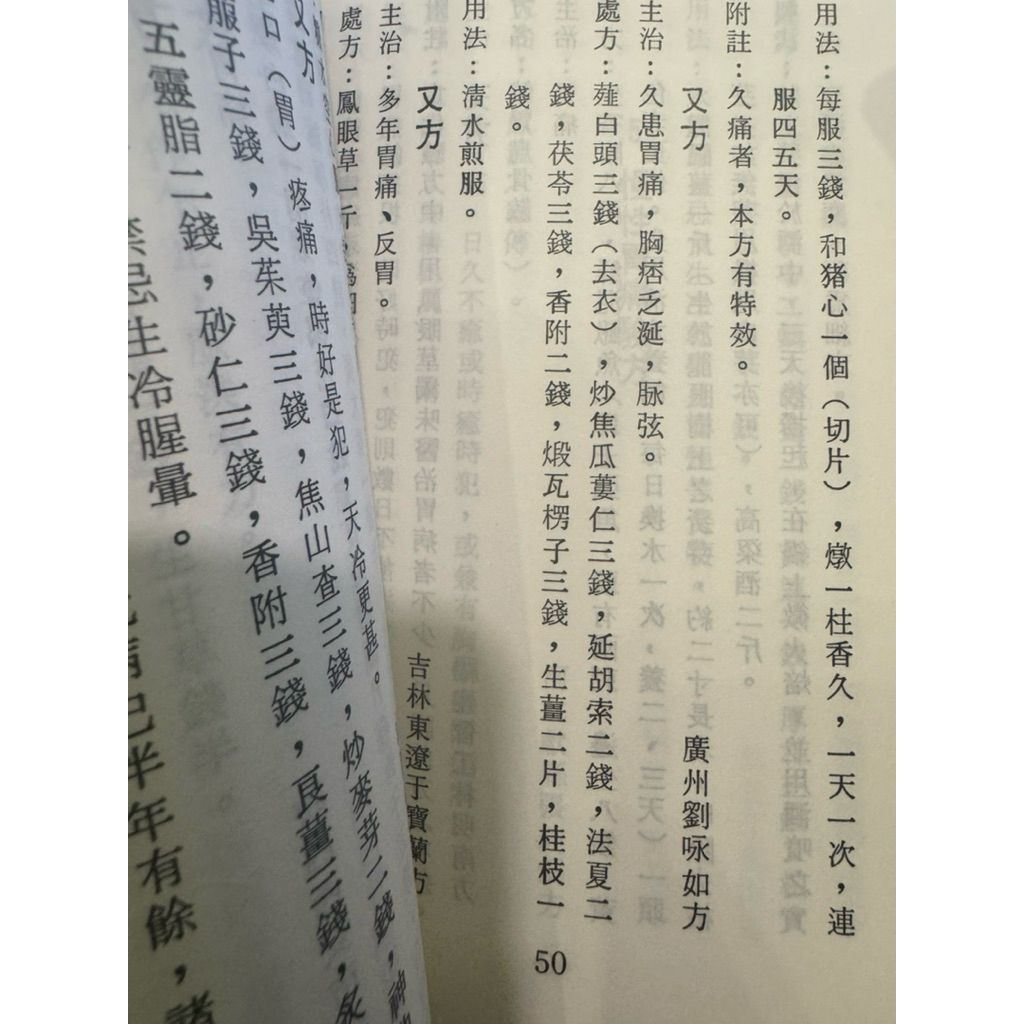 用法：每服三錢，和猪心一個（切片），燉一柱香久，一天一次，連
服四五天。
附註：久痛者，本方有特效。
又方　廣州劉咏如方
主治：久患胃痛，胸痞乏涎，脉弦。
處方：薤白頭三錢（去衣），炒焦瓜蔞仁三錢，延胡索二錢，法夏二
錢，茯苓三錢，香附二錢，煅瓦楞子三錢，生薑二片，桂枝一
錢。
用法：清水煎服。
又方　吉林東遼于寶蘭方
主治：多年胃痛、反胃。
處方：鳳眼草一斤，
50
又方
口（胃）疼痛，時好是犯，天冷更甚。
服子三錢，吳茱萸三錢，焦山查三錢，炒麥芽二錢，神
五靈脂二錢，砂仁三錢，香附三錢，良薑三錢，
禁忌生冷腥暈。
病已半年有餘，諸